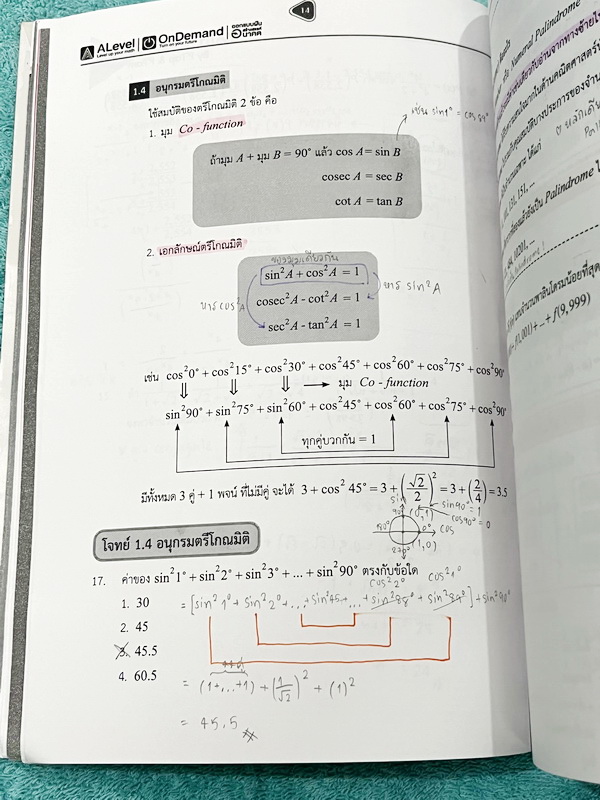 14
ALevel
Level up your math
OnDemand
Turn on your future
ออกแบบฝัน
อนาคต
1.4 อนุกรมตรีโกณมิติ
ใช้สมบัติของตรีโกณมิติ 2 ข้อ คือ
เช่น sin1° = cos 89°
1. มุม Co - function
ถ้ามุม A + มุม B = 90° แล้ว cos A = sin B
cosec A = sec B
cot A = tan B
2. เอกลักษณ์ตรีโกณมิติ
ของมุมเดียวกัน
sin²A + cos²A = 1
หาร cos²A
หาร sin²A
cosec²A - cot²A = 1
sec²A - tan²A = 1
เช่น cos²0° + cos²15° + cos²30° + cos²45° + cos²60° + cos²75° + cos²90°
มุม Co - function
sin²90° + sin²75° + sin²60° + cos²45° + cos²60° + cos²75° + cos²90°
ทุกคู่บวกกัน = 1
มีทั้งหมด 3 คู่ + 1 พจน์ ที่ไม่มีคู่ จะได้ 3 + cos² 45° = 3 + (√2/2)² = 3 + (2/4) = 3.5
sin
90° (0,1)
sin90° = 1
cos90° = 0
180°
0° cos
270° (1,0)
โจทย์ 1.4 อนุกรมตรีโกณมิติ
17. ค่าของ sin²1° + sin²2° + sin²3° + ... + sin²90° ตรงกับข้อใด
cos²2° cos²1°
1. 30
= [sin²1° + sin²2° + ... + sin²45 + ... + sin²88° + sin²89°] + sin²90°
2. 45
3. 45.5
4. 60.5
44ตัว
= (1+...+1) + (1/√2)² + (1)²
= 45.5
Numeral Palindrome
Palindrome
f(9,999)